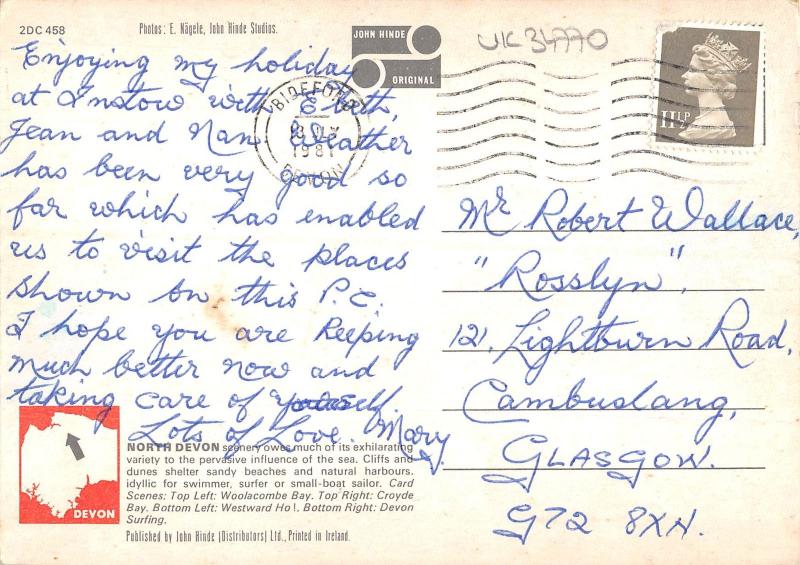 2DC 458
Photos: E. Nägele, John Hinde Studios.
JOHN HINDE
ORIGINAL
UK 34770
Enjoying my holiday
at Instow with E'beth,
Jean and Nan. Weather
has been very good so
far which has enabled
us to visit the places
shown on this P.C.
I hope you are keeping
much better now and
taking care of yourself.
Lots of Love. Mary.
BIDEFORD
1981
DEVON
11½P
Mr Robert Wallace,
"Rosslyn",
121, Lightburn Road,
Cambuslang,
GLASGOW.
G72 8XH.
DEVON
NORTH DEVON scenery owes much of its exhilarating
variety to the pervative influence of the sea. Cliffs and
dunes shelter sandy beaches and natural harbours.
idyllic for swimmer, surfer or small-boat sailor. Card
Scenes: Top Left: Woolacombe Bay. Top Right: Croyde
Bay. Bottom Left: Westward Ho!. Bottom Right: Devon
Surfing.
Published by John Hinde (Distributors) Ltd., Printed in Ireland.